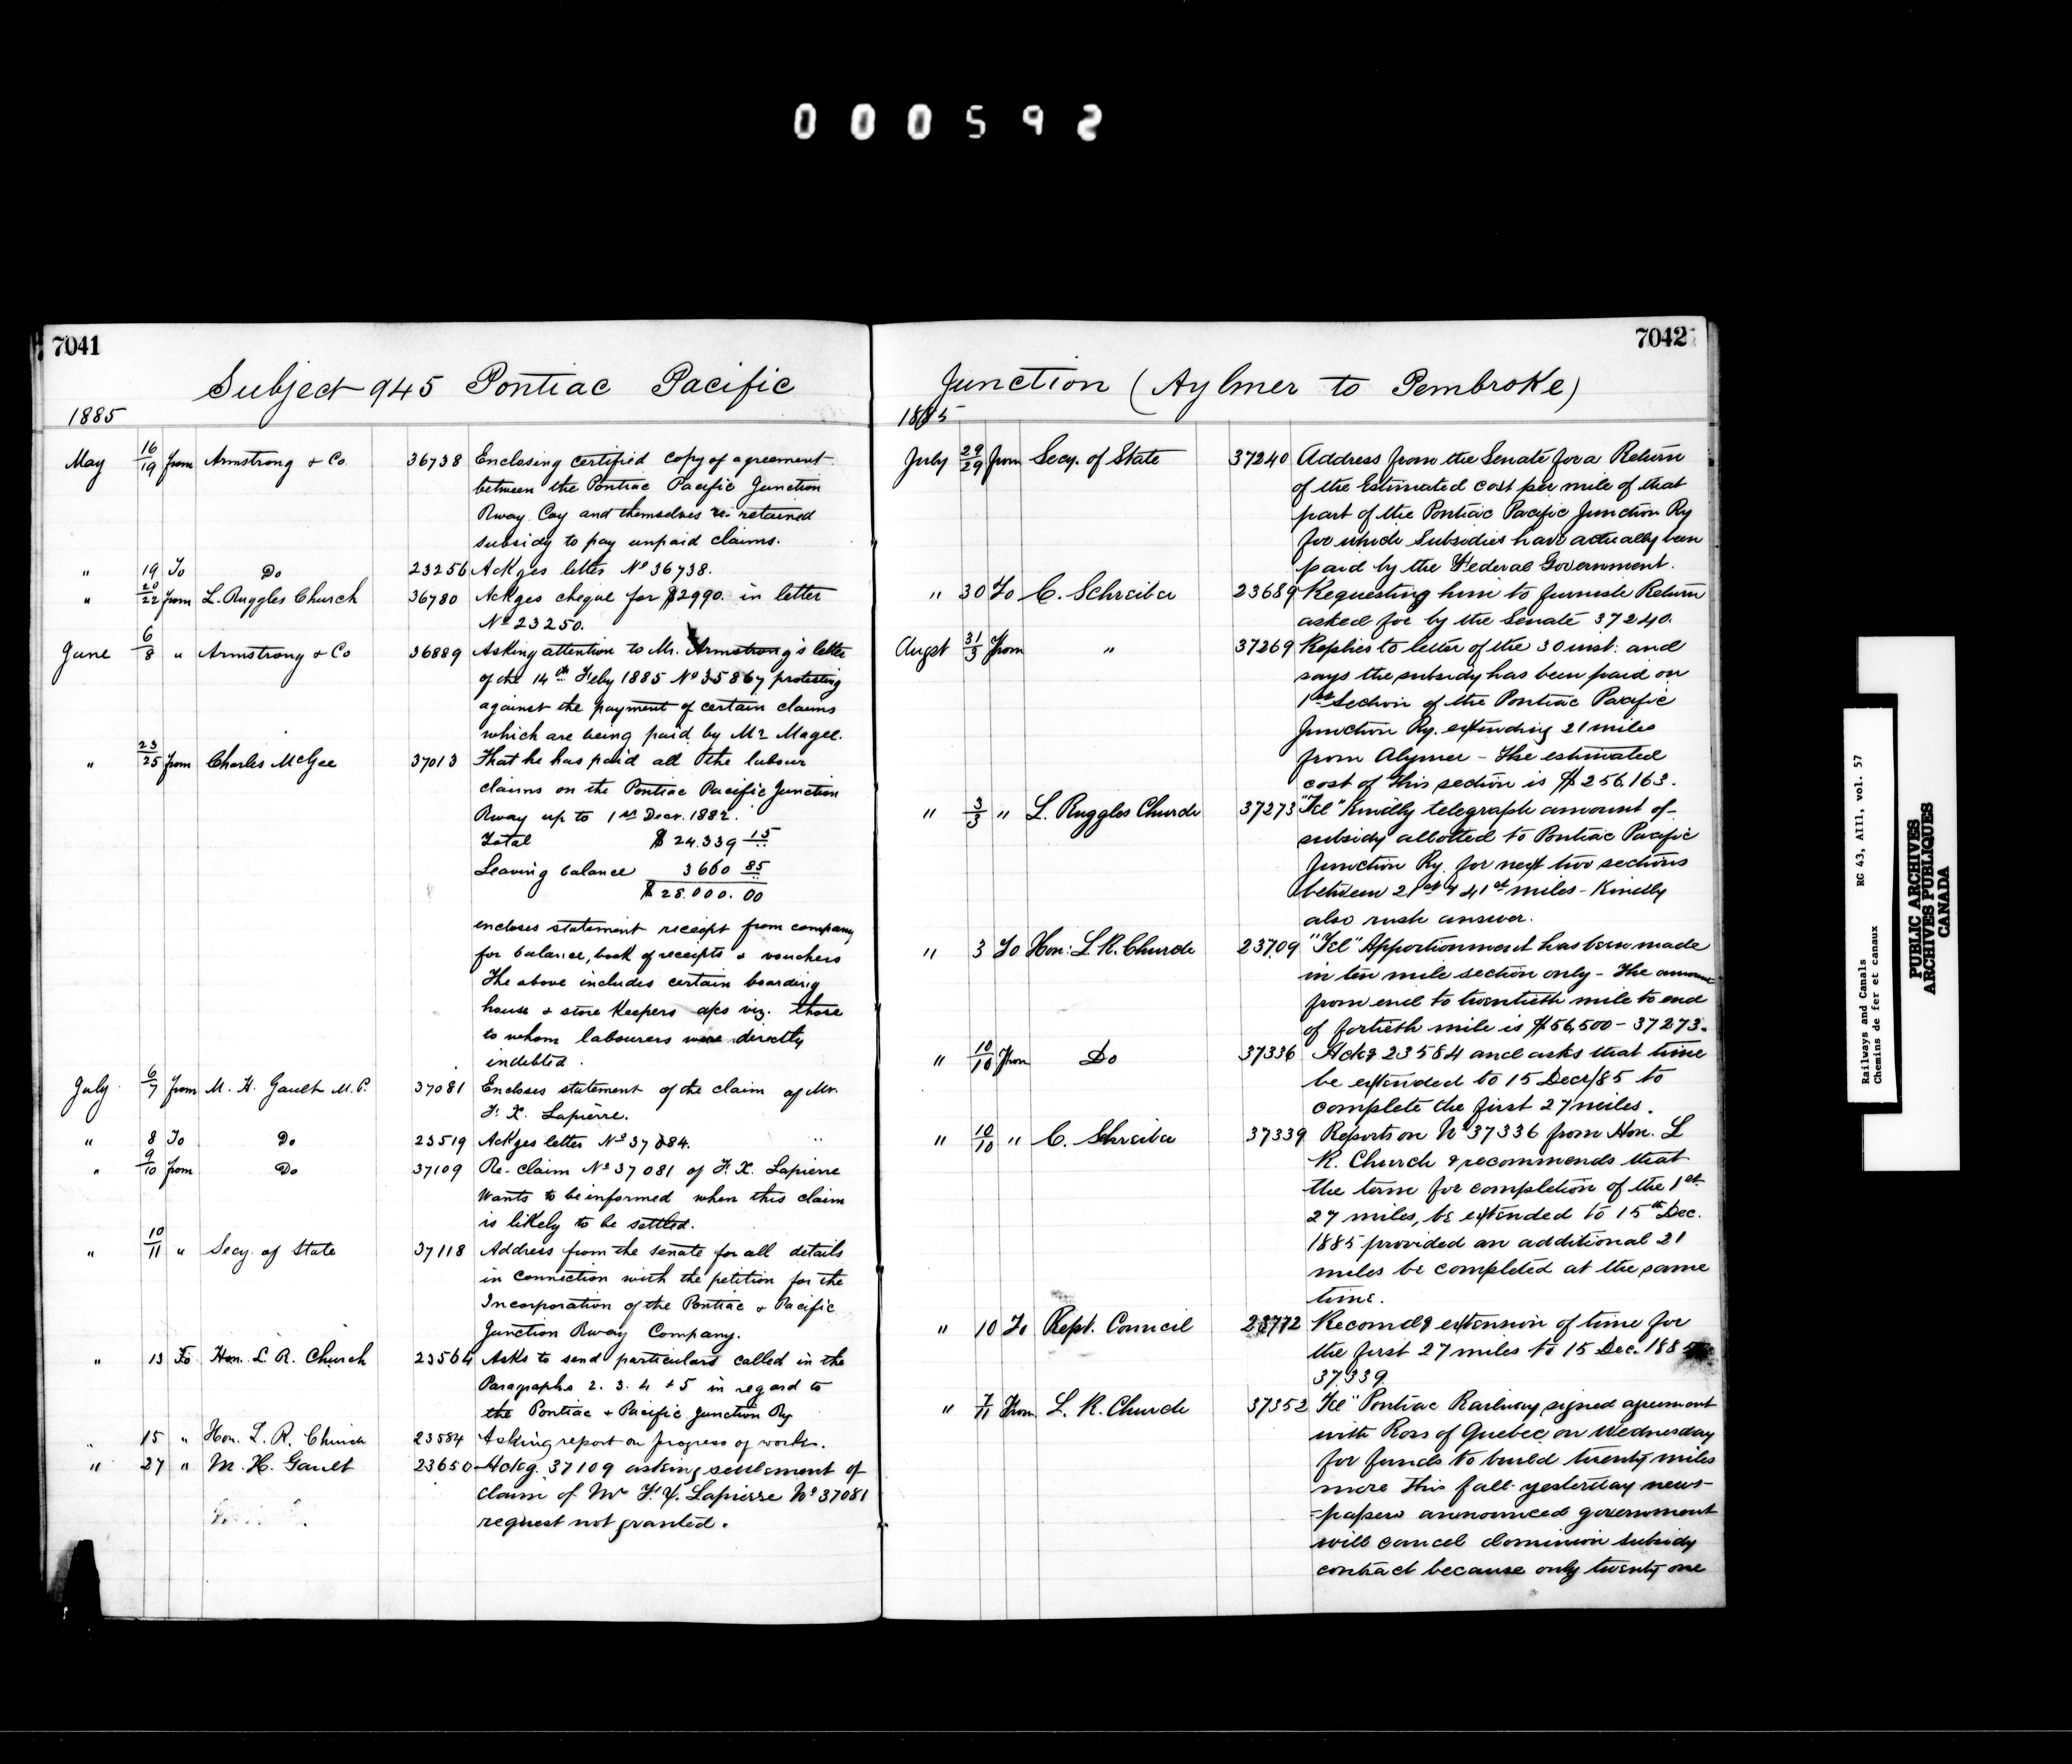 000592
7041
Subject 945 Pontiac Pacific
1885
May 16/19 from Armstrong & Co 36738 Enclosing certified copy of agreement
between the Pontiac Pacific Junction
Rway. Coy and themselves re: retained
subsidy to pay unpaid claims.
" 19 To Do 23256 Ackges letter No 36738.
" 20/22 from L. Ruggles Church 36780 Ackges cheque for $2990. in letter
No 23250.
June 6/8 " Armstrong & Co 36889 Asking attention to Mr. Armstrong's letter
of the 14th Feby 1885 No 35867 protesting
against the payment of certain claims
which are being paid by Mr Magee.
" 23/25 from Charles McGee 37013 That he has paid all the labour
claims on the Pontiac Pacific Junction
Rway up to 1st Decr. 1882.
Total $24.339 15
Leaving balance 3660 85
$28.000.00
encloses statement receipt from company
for balance, book of receipts & vouchers
The above includes certain boarding
house & store keepers a/cs viz. those
to whom labourers were directly
indebted.
July 6/7 from M. H. Gault M.P. 37081 Encloses statement of the claim of Mr.
F. X. Lapierre.
" 8 To Do 23519 Ackges letter No 37084.
" 9/10 from Do 37109 Re-claim No 37081 of F. X. Lapierre
Wants to be informed when this claim
is likely to be settled.
" 10/11 " Secy. of State 37118 Address from the senate for all details
in connection with the petition for the
Incorporation of the Pontiac & Pacific
Junction Rway Company.
" 13 To Hon. L. R. Church 23564 Asks to send particulars called in the
Paragraphs 2. 3. 4 & 5 in regard to
the Pontiac & Pacific Junction Ry
" 15 " Hon. L. R. Church 23584 Asking report on progress of works.
" 27 " M. H. Gault 23650 Ackg. 37109 asking settlement of
claim of Mr F. X. Lapierre No 37081
request not granted.
7042
Junction (Aylmer to Pembroke)
1885
July 29/29 from Secy. of State 37240 Address from the Senate for a Return
of the Estimated cost per mile of that
part of the Pontiac Pacific Junction Ry
for which Subsidies have actually been
paid by the Federal Government.
" 30 To C. Schreiber 23689 Requesting him to furnish Return
asked for by the Senate 37240.
Augst 31/3 From " 37269 Replies to letter of the 30 inst: and
says the subsidy has been paid on
1st Section of the Pontiac Pacific
Junction Ry. extending 21 miles
from Alymer - The estimated
cost of this section is $256,163.
" 3/3 " L. Ruggles Church 37273 "Tel" Kindly telegraph amount of
subsidy allotted to Pontiac Pacific
Junction Ry. for next two sections
between 21st & 41st miles - Kindly
also rush answer.
" 3 To Hon: L. R. Church 23709 "Tel" Apportionment has been made
in ten mile section only - The amount
from end to twentieth mile to end
of fortieth mile is $56,500 - 37273.
" 10/10 From Do 37336 Ackg 23584 and asks that time
be extended to 15 Decr/85 to
complete the first 27 miles.
" 10/10 " C. Schreiber 37339 Reports on No 37336 from Hon. L
R. Church & recommends that
the term for completion of the 1st
27 miles, be extended to 15th Dec.
1885 provided an additional 21
miles be completed at the same
time.
" 10 To Rept. Council 23772 Recomdg extension of time for
the first 27 miles to 15 Dec. 1885
37339.
" 7/11 From L. R. Church 37352 Tel" Pontiac Railway signed agreement
with Ross of Quebec on Wednesday
for funds to build twenty miles
more this fall yesterday news-
=papers announced government
will cancel dominion subsidy
contract because only twenty one
Railways and Canals RG 43, AIII, vol. 57
Chemins de fer et canaux
PUBLIC ARCHIVES
ARCHIVES PUBLIQUES
CANADA